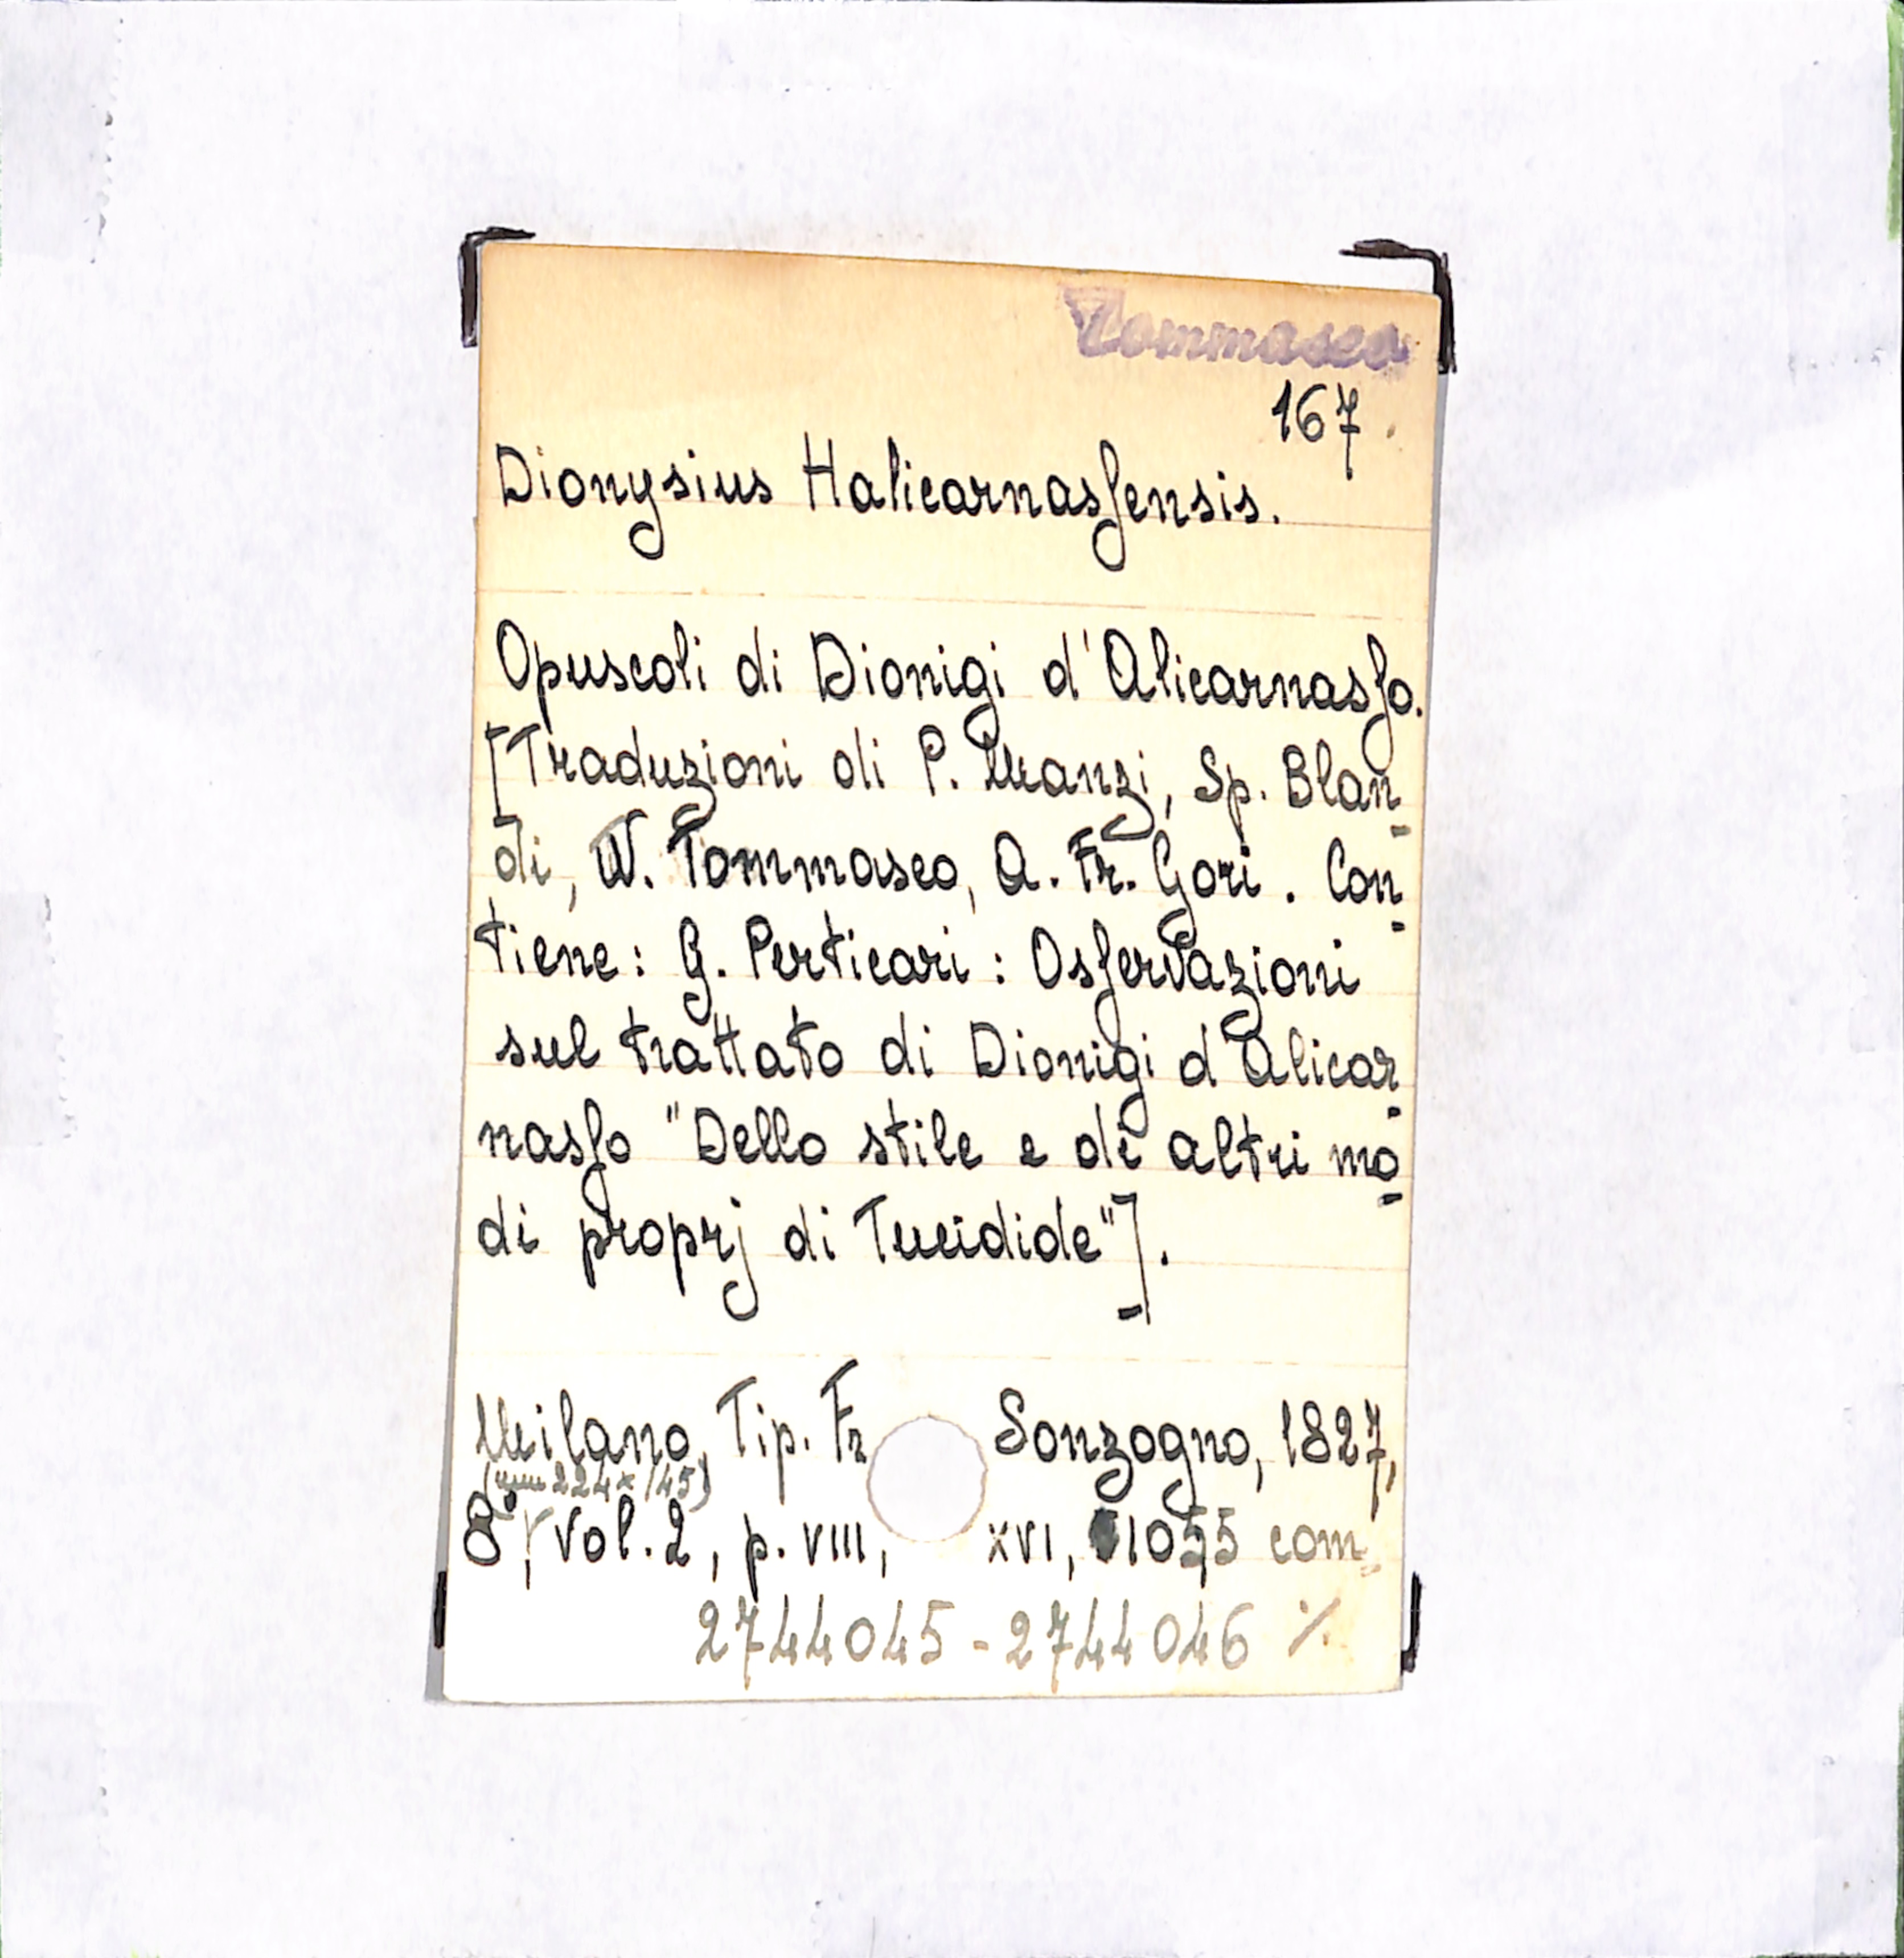 Tommaseo
167.
Dionysius Halicarnaſsensis.
Opuscoli di Dionigi d'Alicarnasſo.
[Traduzioni di P. Manzi, Sp. Blan-
di, N. Tommaseo, A. Fr. Gori. Con-
tiene: G. Perticari: Osſervazioni
sul trattato di Dionigi d'Alicar-
nasſo "Dello stile e di altri mo-
di proprj di Tucidide"].
Milano, Tip. Fr Sonzogno, 1827,
(mm 224x145)
8°, Vol. 2, p. VIII, XVI, 1055 com-
2744045 - 2744046 ٪